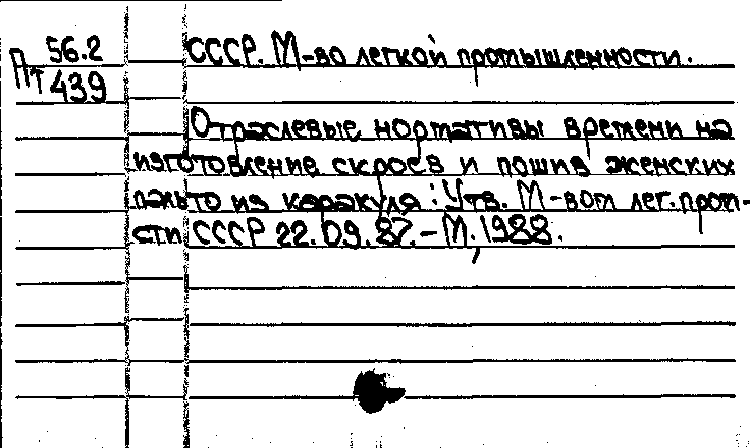 56.2
Пт 439
СССР. М-во легкой промышленности.
Отраслевые нормативы времени на
изготовление скроев и пошив женских
пальто из каракуля: Утв. М-вом лег. пром-
сти СССР 22.09.87.-М., 1988.